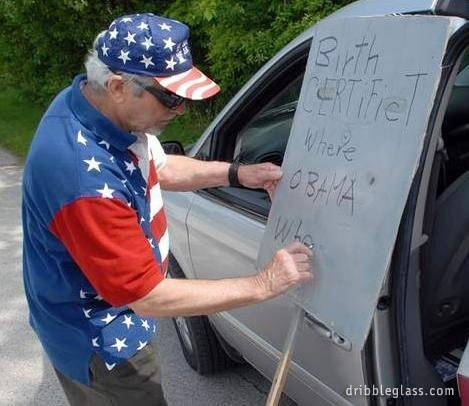 Birth
CERTifieT
Where
OBAMA
Whe
dribbleglass.com